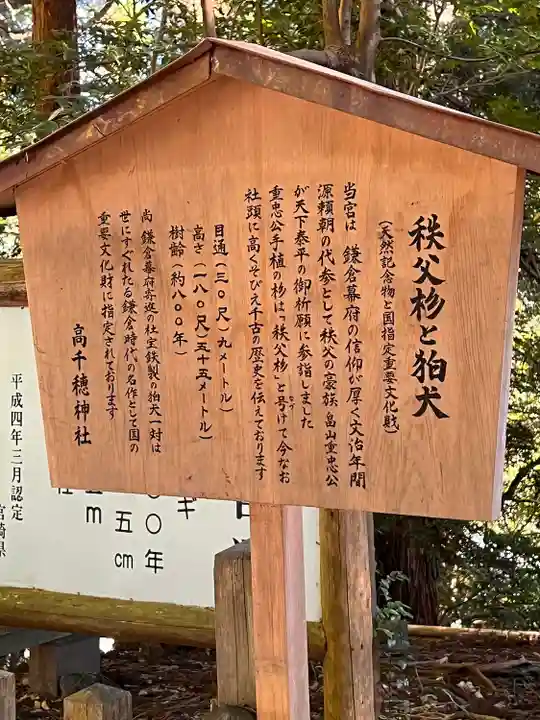 秩父杉と狛犬
(天然記念物と国指定重要文化財)
当宮は 鎌倉幕府の信仰が厚く文治年間
源頼朝の代参として秩父の豪族 畠山重忠公
が天下泰平の御祈願に参詣しました
重忠公手植の杉は「秩父杉」と号けて今なお
なづ
社頭に高くそびえ千古の歴史を伝えております
目通(三〇尺)九メートル
高さ(一八〇尺)五十五メートル
樹齢(約八〇〇年)
尚 鎌倉幕府寄進の社宝鉄製の狛犬一対は
世にすぐれたる鎌倉時代の名作として国の
重要文化財に指定されております
高千穂神社
ギ
〇〇年
五cm
m
平成四年三月認定
宮崎県